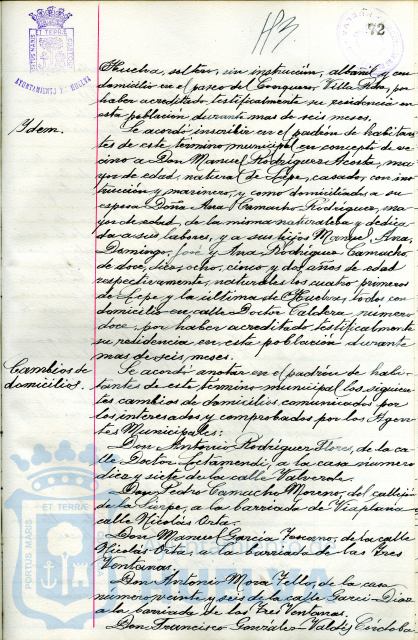 113
72
AYUNTAMIENTO DE HUELVA
Huelva, soltero, sin instrucción, albañil y con
domicilio en el paseo del Conquero, Villa
haber acreditado testificalmente su residencia en
esta población durante mas de seis meses.
Idem.
Se acordó inscribir en el padrón de habitan
tes de este término municipal en concepto de ve
cino a Don Manuel Rodríguez Acosta, ma
yor de edad, natural de Lepe, casado, con ins
trucción y marinero, y como domiciliados a su
esposa Doña Ana Camacho Rodríguez, ma
yor de edad, de la misma naturaleza y dedica
da a sus labores, y a sus hijos Manuel, Ana,
Domingo, José y Ana Rodríguez Camacho
de doce, diez, ocho, cinco y dos años de edad
respectivamente, naturales los cuatro primeros
de Lepe y la última de Huelva, todos con
domicilio en calle Doctor Caldera, numero
doce, por haber acreditado testificalmente
su residencia en esta población durante
mas de seis meses.
Cambios de
domicilios.
Se acordó anotar en el padrón de habi-
tantes de este término municipal los siguien
tes cambios de domicilios comunicados por
los interesados y comprobados por los Agen
tes Municipales:
Don Antonio Rodríguez Flores, de la ca
lle Doctor Letamendi, a la casa numero
diez y siete de la calle Valverde.
Don Pedro Camacho Moreno, del callejón
de la a la barriada de Viaplana
calle Nicolás Orta.
Don Manuel García Toscano, de la calle
Nicolás Orta, a la barriada de las Tres
Ventanas.
Don Antonio Mora Tello, de la casa
numero veinte y seis de la calle Garci-Diaz
a la barriada de las Tres Ventanas.
Don Francisco González-Valdés Córdoba
PORTUS MARIS ET TERRÆ